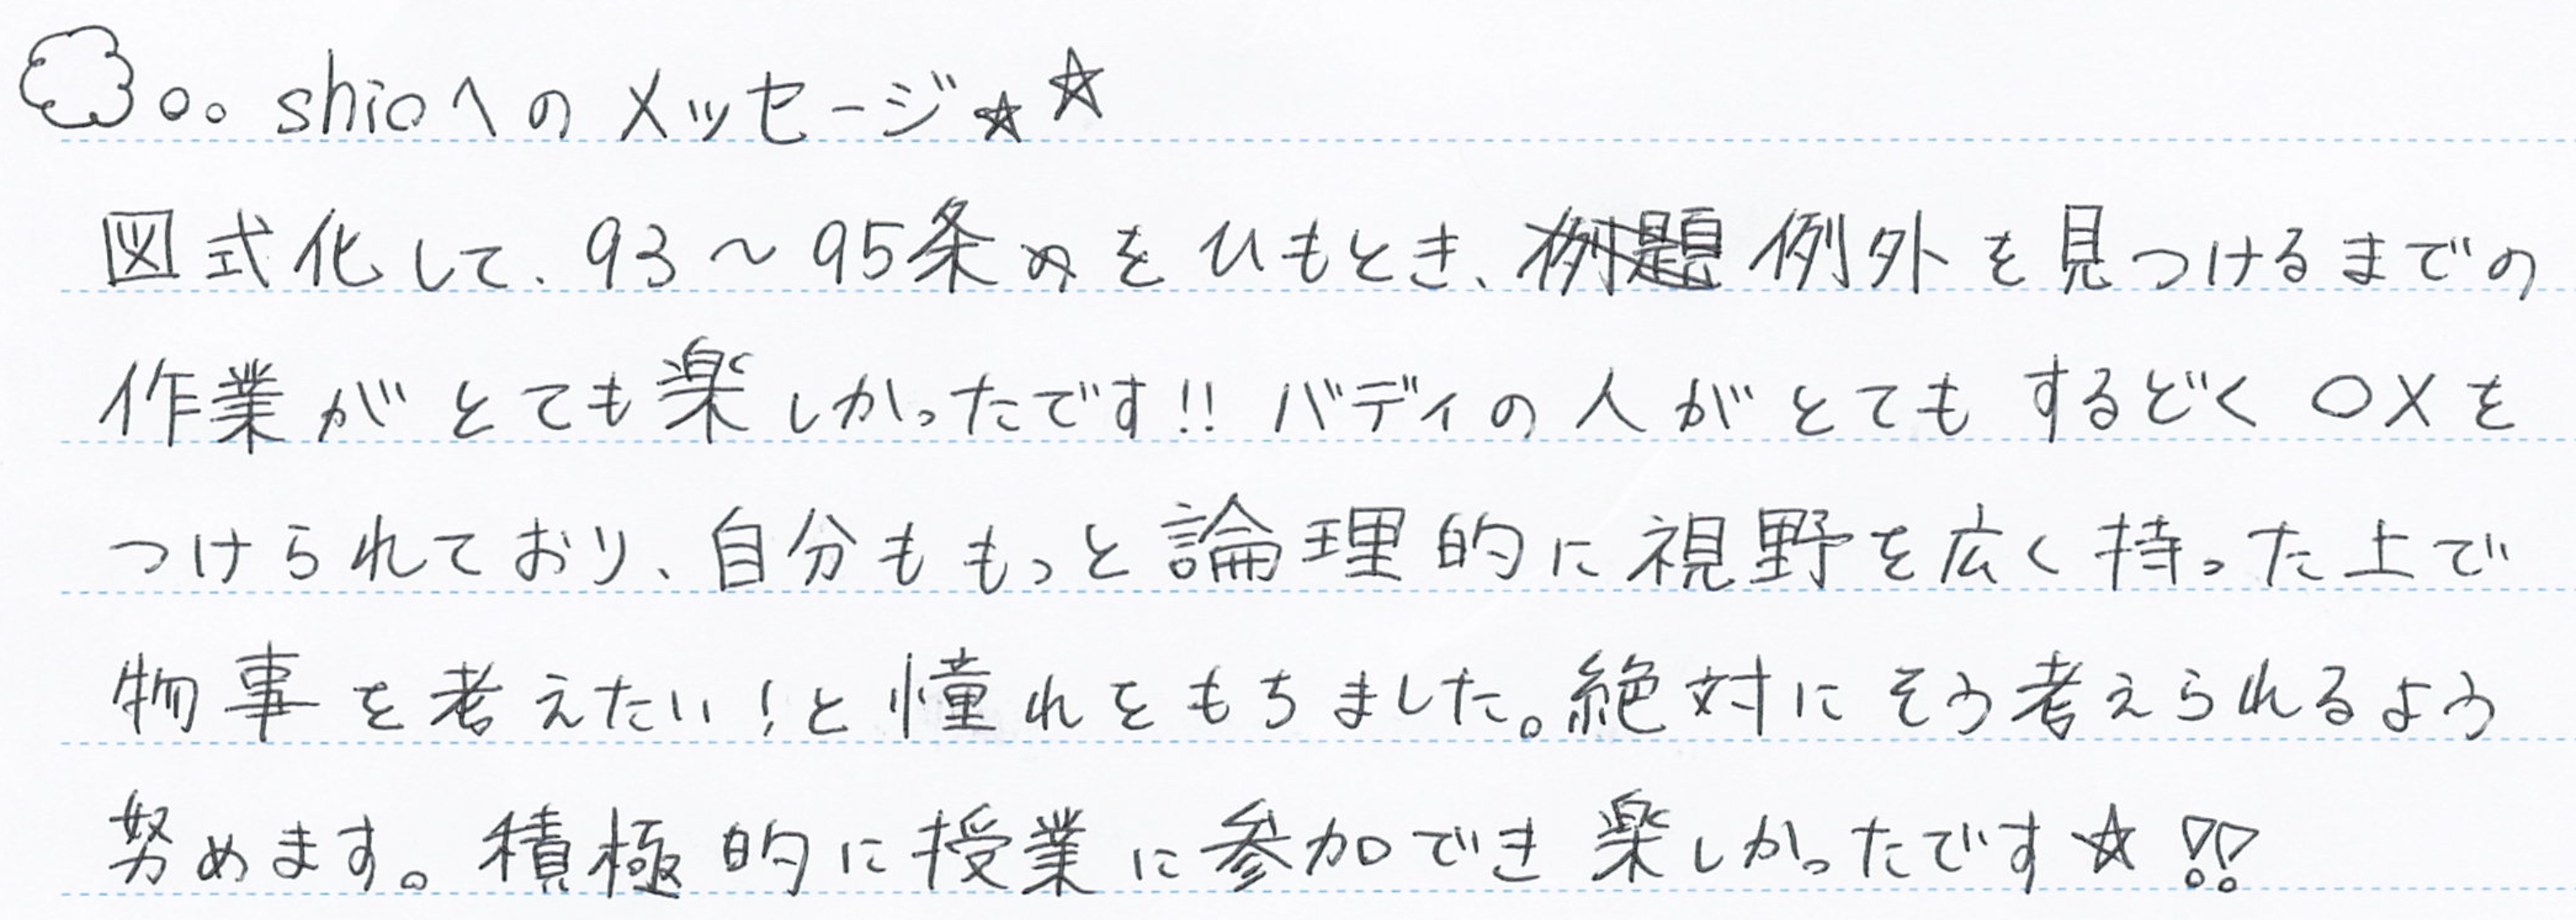 shioへのメッセージ☆☆
図式化して、93〜95条をひもとき、例題 例外を見つけるまでの
作業がとても楽しかったです!! バディの人がとてもするどく○×を
つけられており、自分ももっと論理的に視野を広く持った上で
物事を考えたい!と憧れをもちました。絶対にそう考えられるよう
努めます。積極的に授業に参加でき楽しかったです☆!!